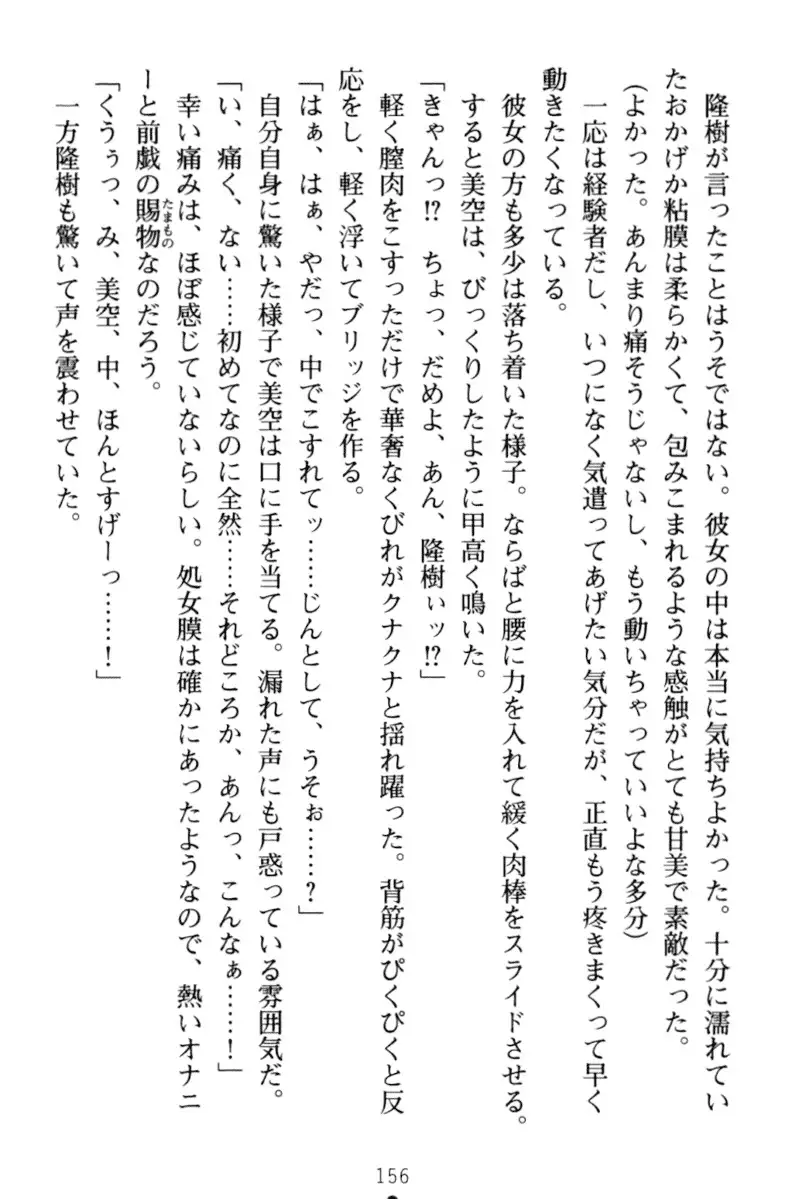 隆樹が言ったことはうそではない。彼女の中は本当に気持ちよかった。十分に濡れてい
たおかげか粘膜は柔らかくて、包みこまれるような感触がとても甘美で素敵だった。
(よかった。あんまり痛そうじゃないし、もう動いちゃっていいよな多分)
一応は経験者だし、いつになく気遣ってあげたい気分だが、正直もう疼きまくって早く
動きたくなっている。
彼女の方も多少は落ち着いた様子。ならばと腰に力を入れて緩く肉棒をスライドさせる。
すると美空は、びっくりしたように甲高く鳴いた。
「きゃんっ!? ちょっ、だめよ、あん、隆樹ぃッ!?」
軽く膣肉をこすっただけで華奢なくびれがクナクナと揺れ躍った。背筋がぴくぴくと反
応をし、軽く浮いてブリッジを作る。
「はぁ、はぁ、やだっ、中でこすれてッ……じんとして、うそぉ……?」
自分自身に驚いた様子で美空は口に手を当てる。漏れた声にも戸惑っている雰囲気だ。
「い、痛く、ない……初めてなのに全然……それどころか、あんっ、こんなぁ……!」
幸い痛みは、ほぼ感じていないらしい。処女膜は確かにあったようなので、熱いオナニ
ーと前戯の賜物たまものなのだろう。
「くうぅっ、み、美空、中、ほんとすげーっ……!」
一方隆樹も驚いて声を震わせていた。
156